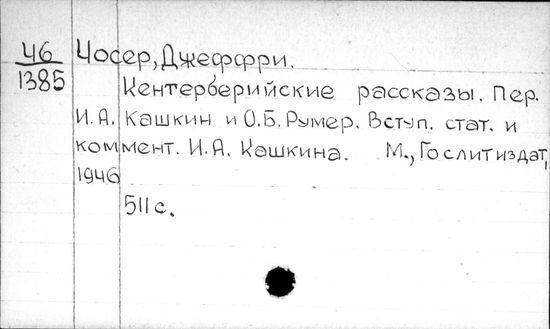 46
1385
Чосер, Джеффри.
Кентерберийские рассказы. Пер.
И.А. Кашкин и О.Б. Румер. Вступ. стат. и
коммент. И.А. Кашкина. М., Гослитиздат,
1946
511 с.